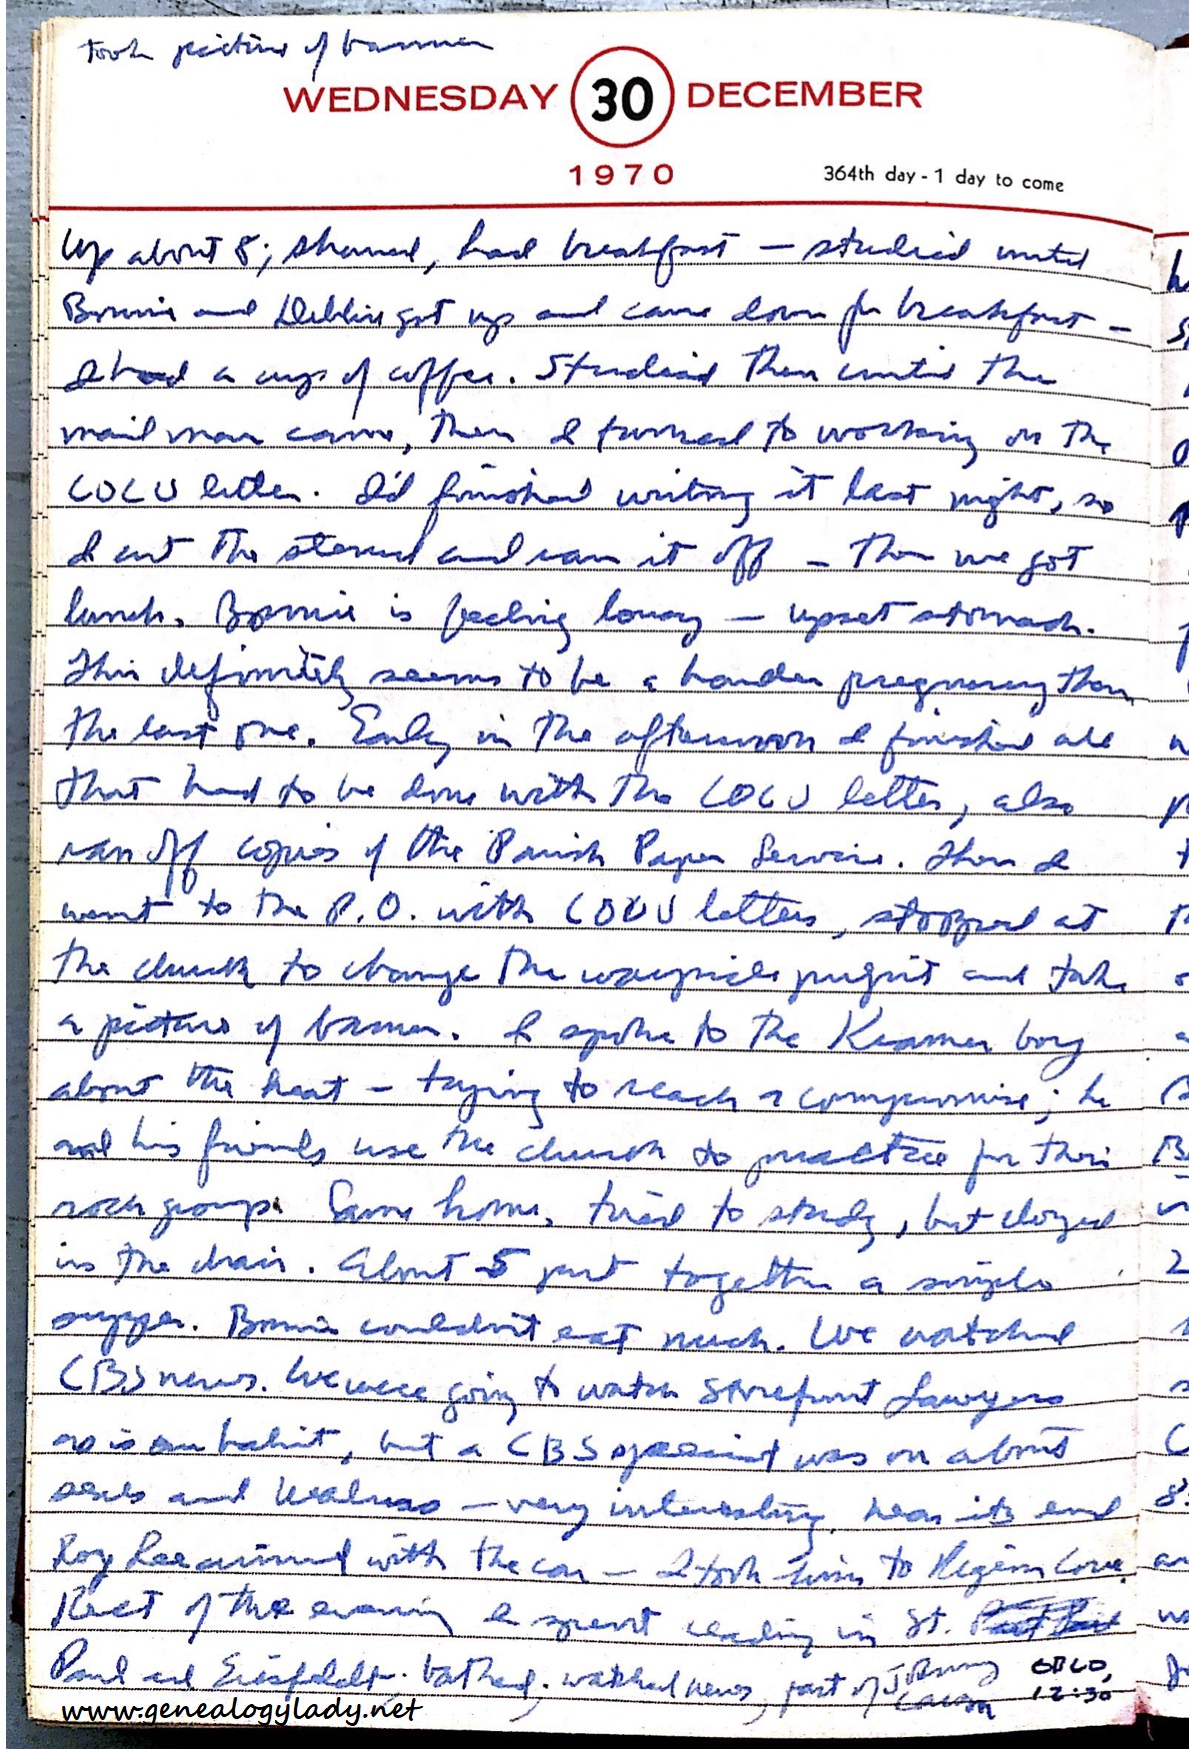 took picture of banner
WEDNESDAY 30 DECEMBER
1970
364th day - 1 day to come
Up about 8; shaved, had breakfast — studied until
Bonnie and Debbie got up and came down for breakfast —
I had a cup of coffee. Studied then until the
mail man came, then I turned to working on the
COCU letter. I'd finished writing it last night, so
I cut the stencil and ran it off — then we got
lunch. Bonnie is feeling lousy — upset stomach.
This definitely seems to be a harder pregnancy than
the last one. Early in the afternoon I finished all
that had to be done with the COCU letter, also
ran off copies of the Parish Paper Service. Then I
went to the P.O. with COCU letters, stopped at
the church to change the wayside pulpit and take
a picture of banner. I spoke to the Kramer boy
about the heat — trying to reach a compromise; he
and his friends use the church to practice for their
rock group. Came home, tried to study, but dozed
in the chair. About 5 put together a simple
supper. Bonnie couldn't eat much. We watched
CBS news. We were going to watch Storefront Lawyers
as is our habit, but a CBS special was on about
seals and walruses — very interesting. Near its end
Roy Lee arrived with the car — I took him to
Rest of the evening I spent reading in St.
Paul and bathed, watched news, part of Johnny
Carson
12:30
www.genealogylady.net